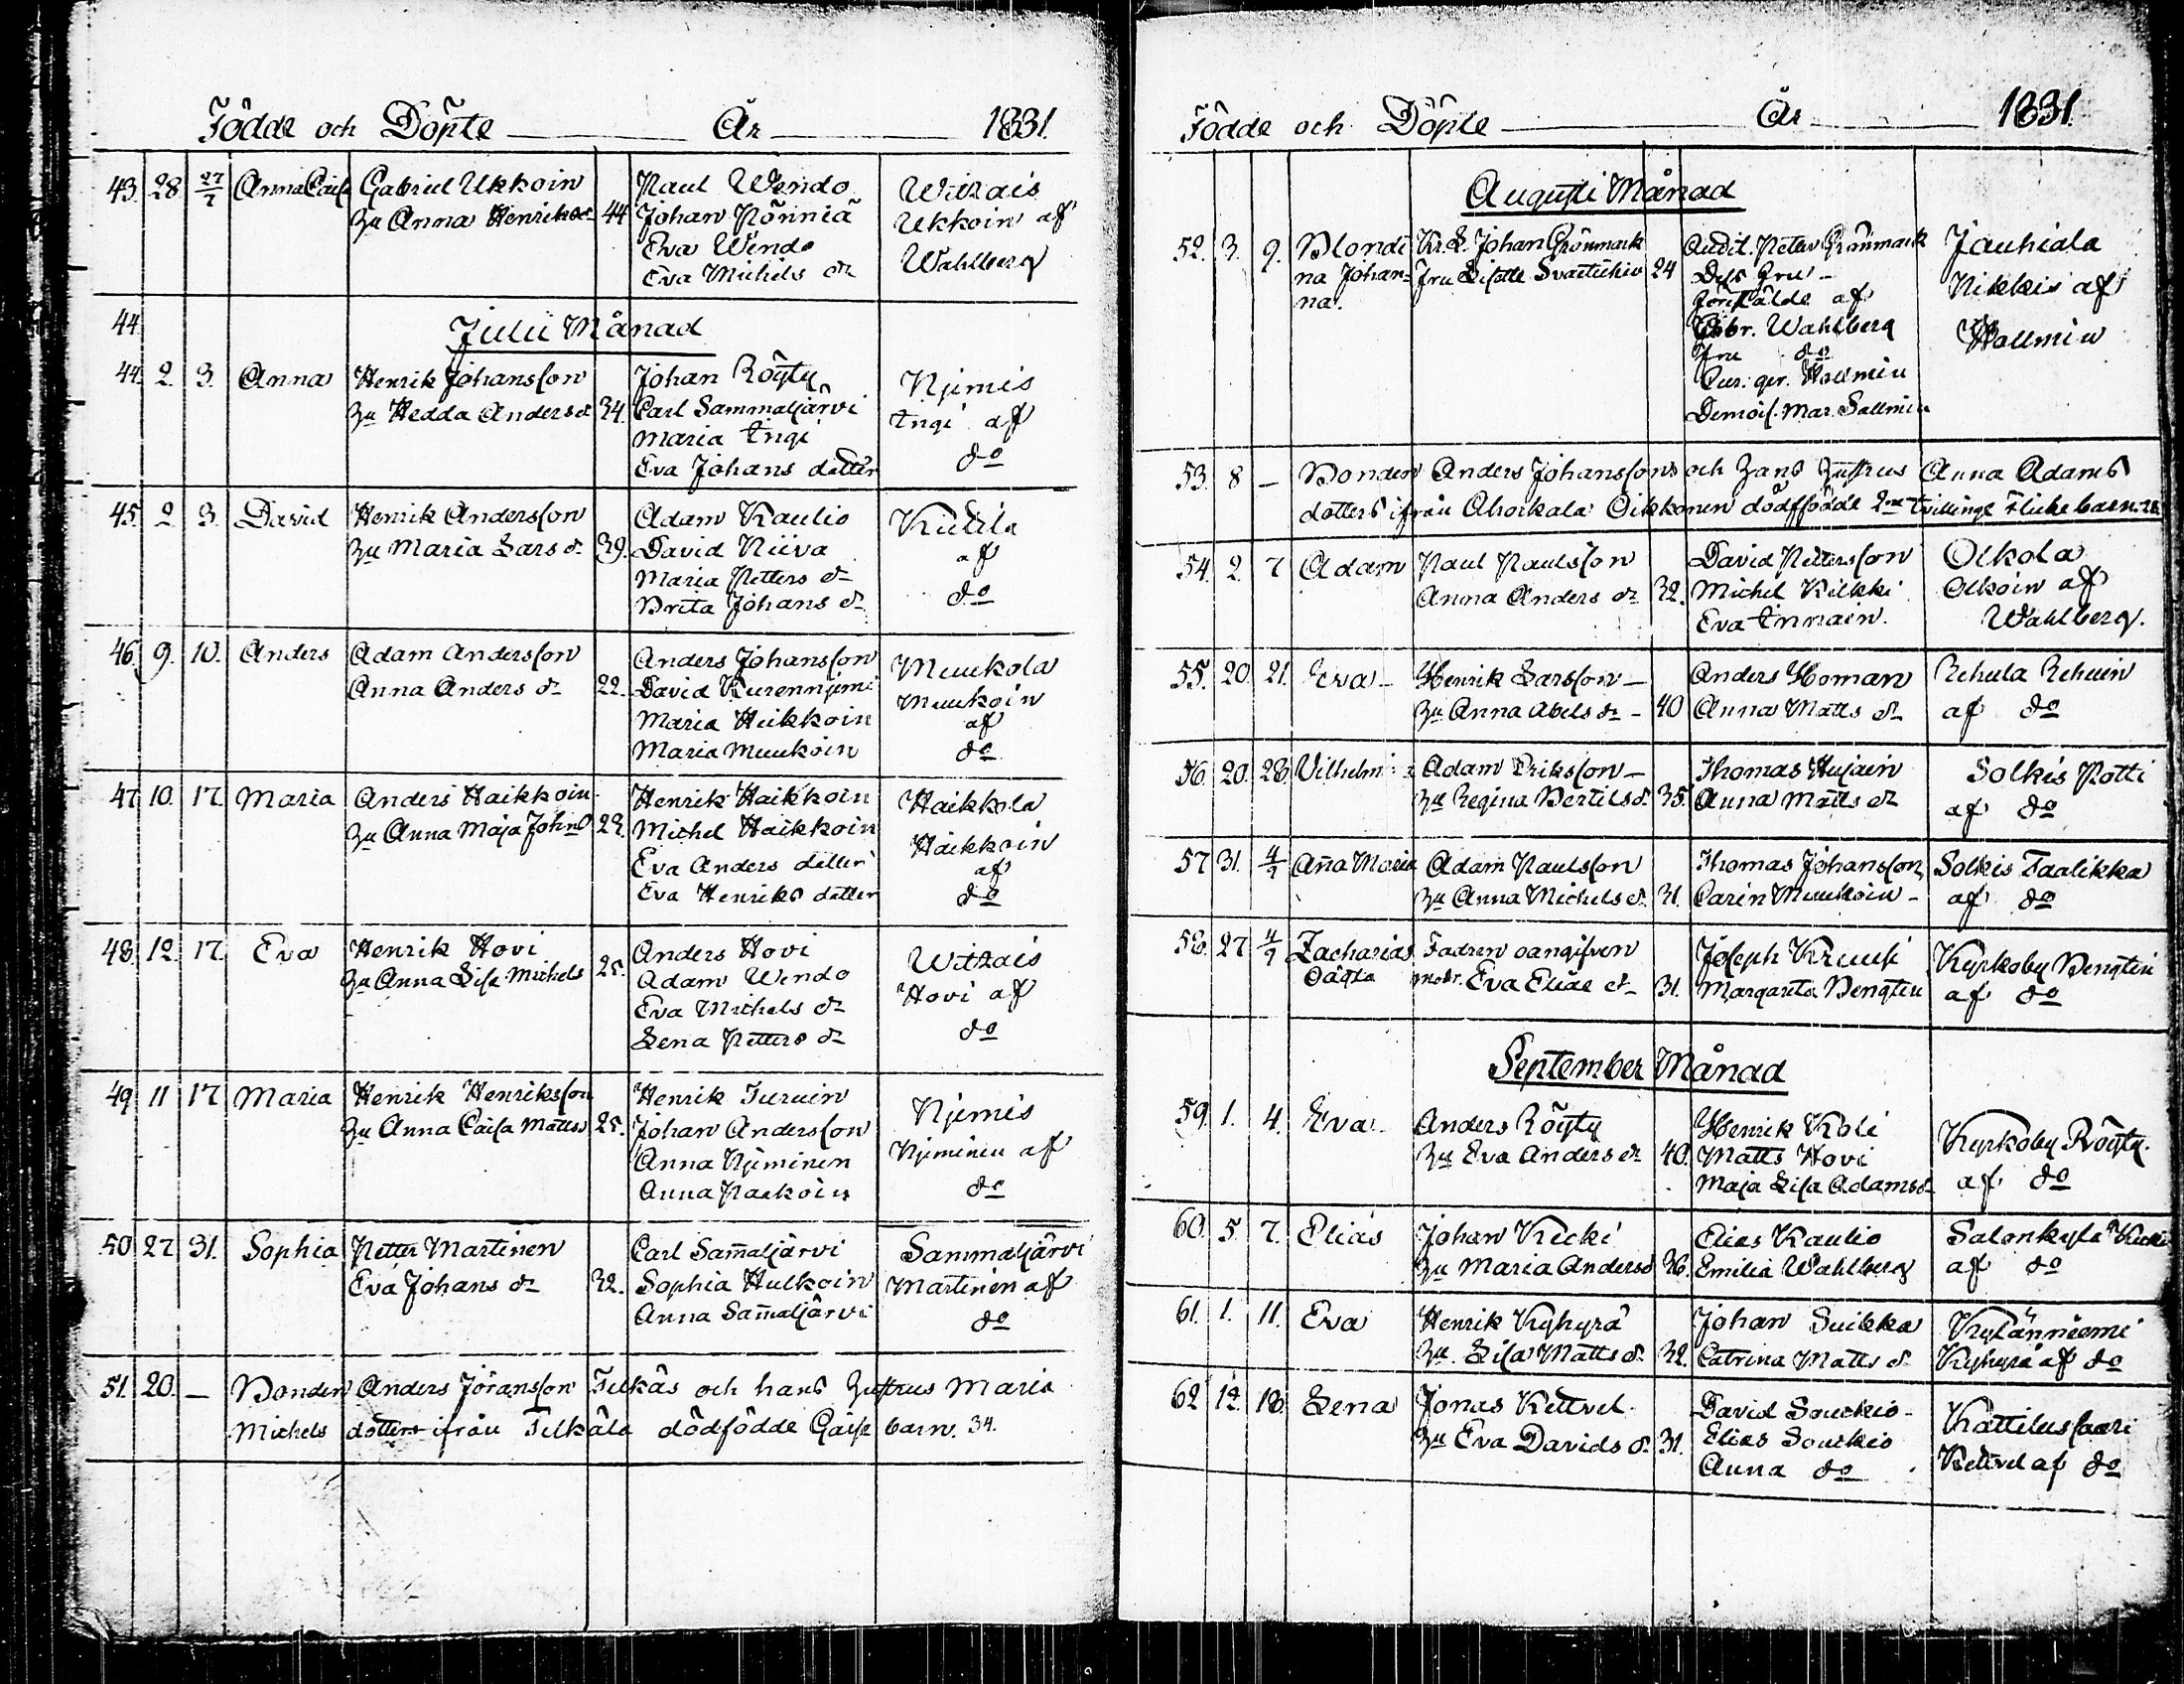 Födde och Döpte År 1831.
43. 28 27/7 Anna Caisa Gabriel Ukkoin Paul Wendo Witzais
Hu Anna Henriks dr 44 Johan Pönniä Ukkoin af
Eva Wendo Wahlberg
Eva Michels dr
44 Julii Månad
44. 2. 3. Anna Henrik Johansson Johan Röyty Njemis
Hu Hedda Anders dr 34. Carl Sammaljärvi Ingi af
Maria Ingi
Eva Johans dotter do
45. 2 3. David Henrik Andersson Adam Kaulio
Hu Maria Lars dr 39. David Niiva af
Maria Petters dr
Brita Johans dr do
46. 9. 10. Anders Adam Andersson Anders Johansson Muukola
Anna Anders dr 22. David Kurennjemi Muukoin
Maria Heikkoin af
Maria Muukoin do
47 10. 17. Maria Anders Haikkoin Henrik Haikkoin Haikkola
Hu Anna Maja Johns Michel Haikkoin Haikkoin
Eva Anders dotter af
Eva Henriks dotter do
48. 12. 17. Eva Henrik Hovi Anders Hovi Witzais
Hu Anna Lisa Michels 25. Adam Wendo Hovi af
Eva Michels dr
Lena Petters dr do
49 11 17 Maria Henrik Henriksson Henrik Njemis
Hu Anna Caisa Matts 25. Johan Andersson Njeminen af
Anna Njeminen
Anna do
50 27 31. Sophia Petter Martinen Carl Sam̄aljärvi Sammaljärvi
Eva Johans dr 32. Sophia Hulkoin Martinen af
Anna Sam̄aljärvi do
51. 20. — Bonden Anders Jöransson och hans Hustrus Maria
Michels dotters ifrån dödfödde barn. 34.
Födde och Döpte År 1831.
Augusti Månad
52. 3. 9. Blondi Johan Grönmark Audit. Petter Grönmark Jauhiala
na Johan= Fru Lisette 24 Dess Fru — Pikkis af
na. af Hallmin
Wahlberg
Fru do
Hallmin
Demois. Mar. Sallmin
53. 8 — Bonden Anders Johanssons och Hans Hustrus Anna Adams
dotters ifrån Ahokala Oikkonen dödfödde Tvillinge Flickebarn
54. 2. 7 Adam Paul Paulsson David Pettersson Olkola
Anna Anders dr 32. Michel Kilkki Olkoin af
Eva Wahlberg.
55. 20. 21. Eva — Henrik Larsson — Anders Homan Rehula Rehuin
Hu Anna Abels dr — 40 Anna Matts dr af do
56 20. 28. Adam Eriksson — Thomas Solkis Potti
Hu Regina Bertils dr 35. Anna Matts dr af do
57 31. 4/9 An̄a Maria Adam Paulsson Thomas Johansson Solkis Taalikka
Hu Anna Michels dr 31. Carin Muukoin — af do
58. 27 4/9 Zacharias Fadren oangifven Joseph Kruuk Kyrkoby Bengtin
Oägta modr. Eva Eliæ dr 31. Margareta Bengtin af do
September Månad
59. 1. 4. Eva Anders Röyty Henrik Koli Kyrkoby Röyty.
Hu Eva Anders dr 40. Matts Hovi
Maja Lisa Adams dr af do
60. 5 7. Elias Johan Kicki Elias Kaulio Salonkylä
Hu Maria Anders d 36. Emilia Wahlberg af do
61. 1. 11. Eva Henrik Kyhyrä Johan Suikka Kylänniemi
Hu Lisa Matts dr 32. Catrina Matts dr Kyhyrä af do
62 12. 18. Lena Jonas Kettvel David Souckio Kattilussaari
Hu Eva Davids dr 31. Elias Souckio
Anna do Kettvel af do